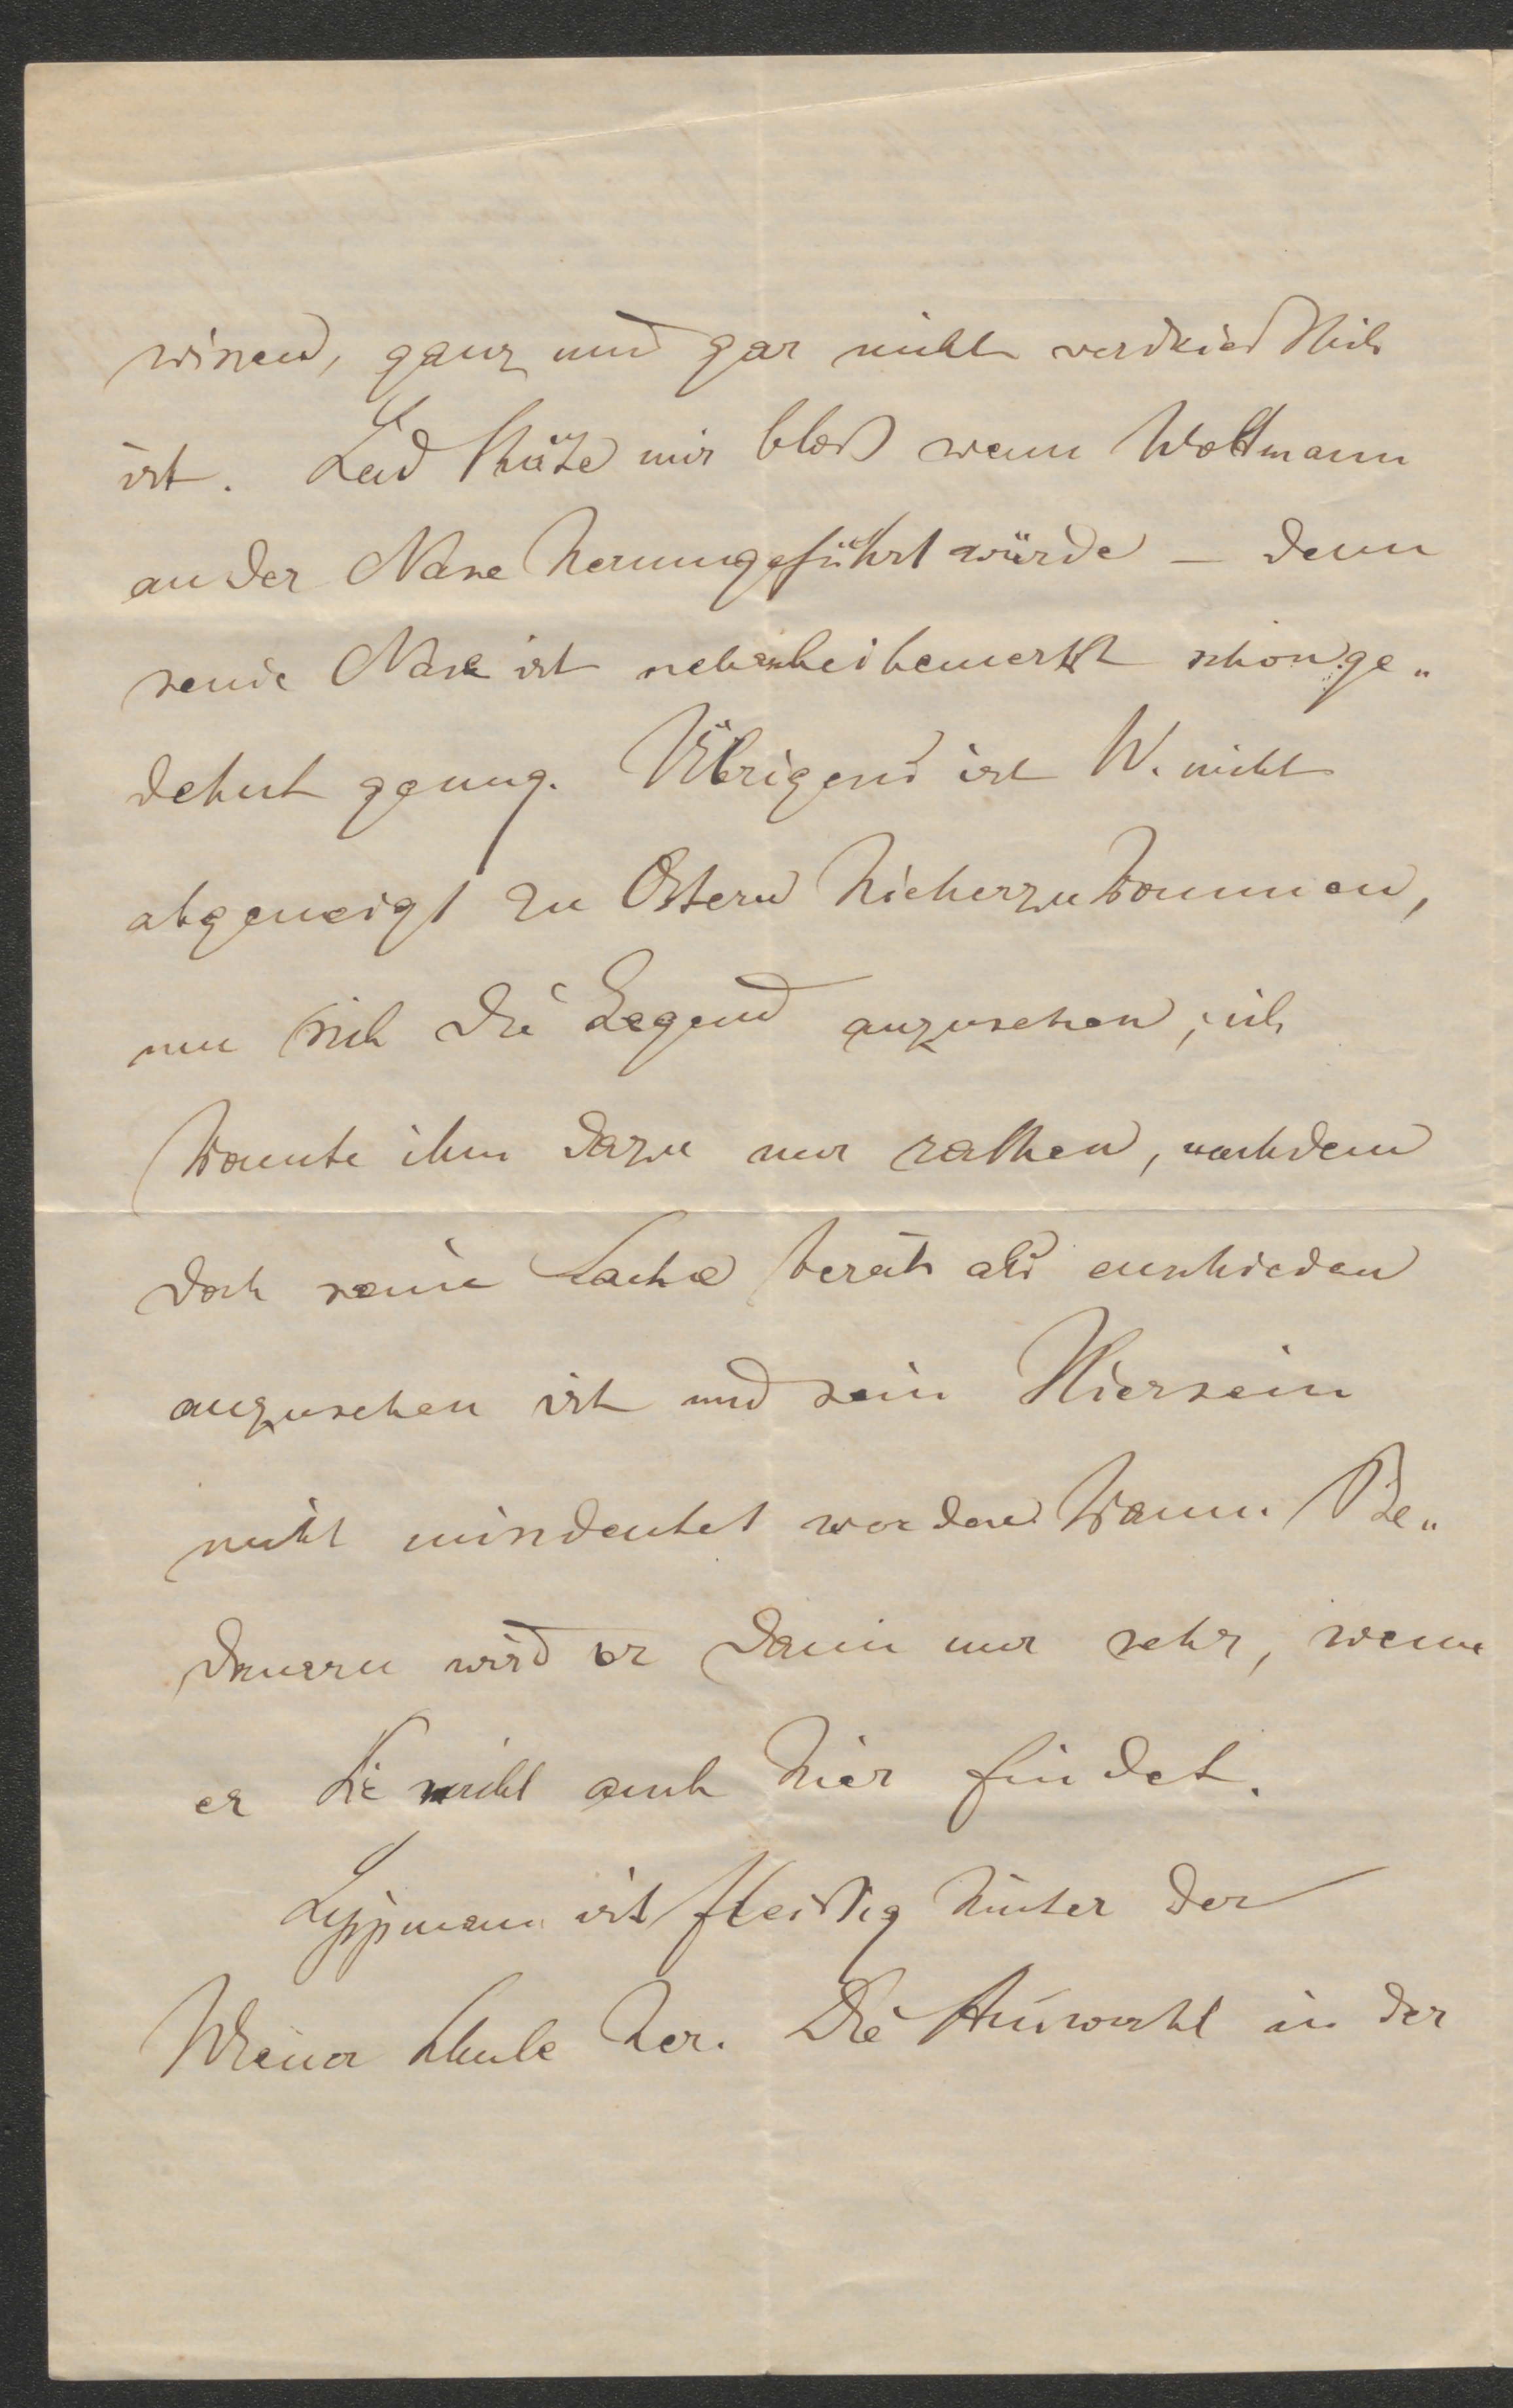 wissen, ganz und gar nicht verdrießlich
ist. Leid thäte mir bloß wenn Woltmann
an der Nase herumgeführt würde — denn
seine Nase ist nebenbei bemerkt schon ge„
dehnt genug. Übrigens ist W. nicht
abgeneigt zu Ostern hieherzukommen,
um sich die Gegend anzusehen, ich
konnte ihm dazu nur rathen, nachdem
doch seine Sache bereits als enschieden
anzusehen ist und sein Hiersein
nicht misdeutet werden kann. Be„
dauern wird er dann nur sehr, wenn
er Sie nicht auch hier findet.
Lippmann ist fleißig hinter der
Wiener Schule her. Die Auswahl in der